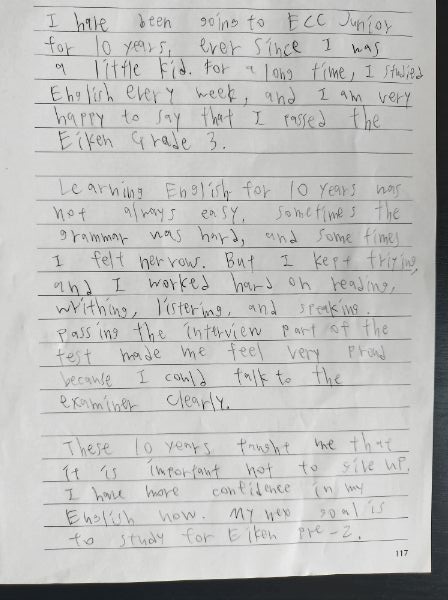 I have been going to ECC Junior
for 10 years, ever since I was
a little kid. For a long time, I studied
English every week, and I am very
happy to say that I passed the
Eiken Grade 3.
Learning English for 10 years was
not always easy. Sometimes the
grammar was hard, and some times
I felt nervous. But I kept triying,
and I worked hard on reading,
writhing, listering, and speaking.
Passing the interview part of the
test made me feel very proud
because I could talk to the
examiner clearly.
These 10 years taught me that
it is important not to give up.
I have more confidence in my
English now. My nex goal is
to study for Eiken pre-2.
117